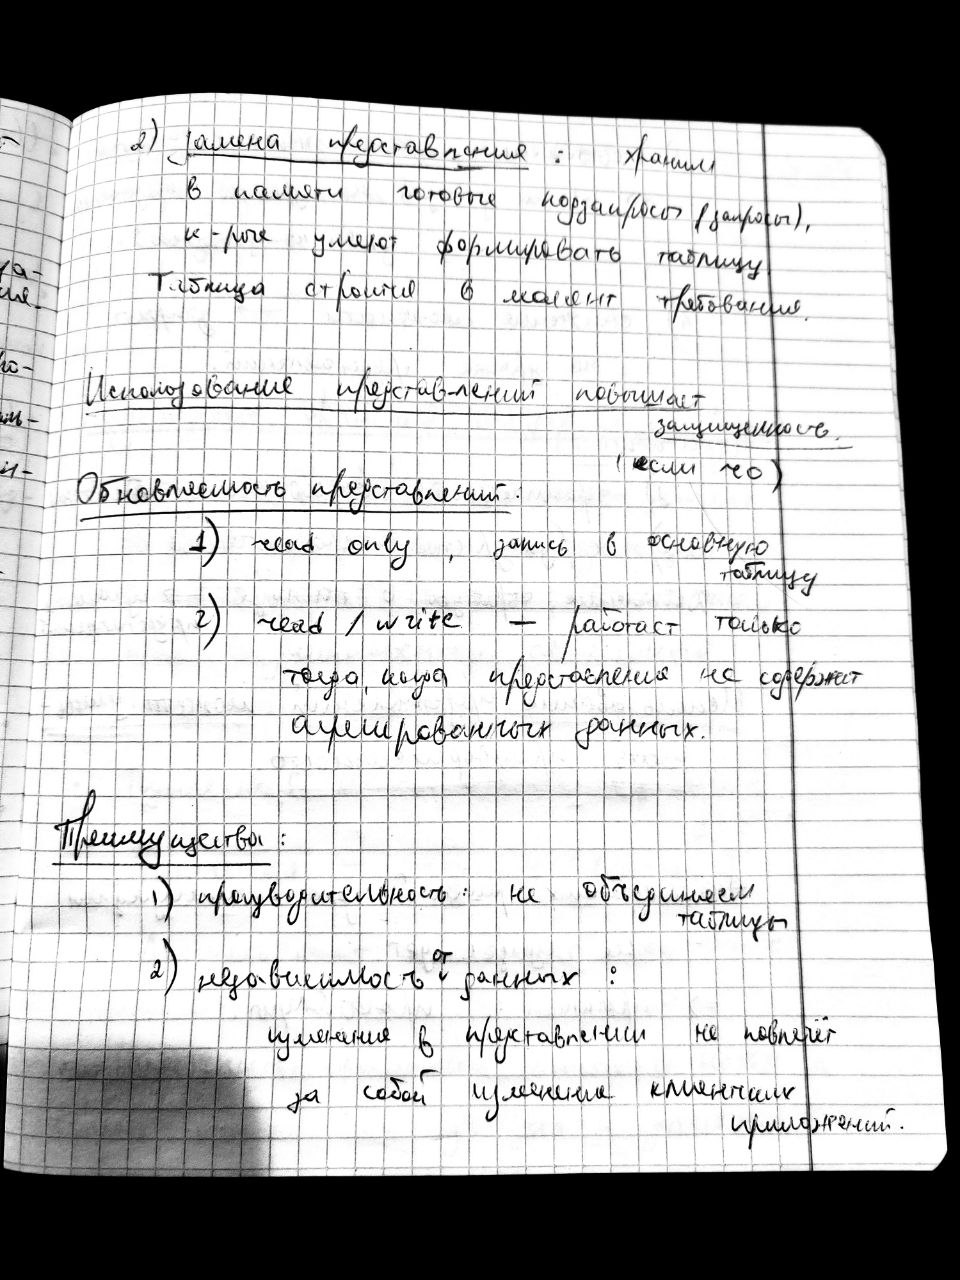 2) замена представления : храним
в памяти готовые подзапросы (запросы),
к-рые умеют формировать таблицу
Таблица строится в момент требования.
Использование представлений повышает
защищенность.
(если чо)
Обновляемость представлений:
1) read only, запись в основную
таблицу
2) read / write — работает только
тогда, когда представления не содержат
агрегированных данных.
Преимущества:
1) производительность: не объединяем
таблицы
2) независимость от данных :
изменения в представлении не повлечёт
за собой изменение клиентских
приложений.